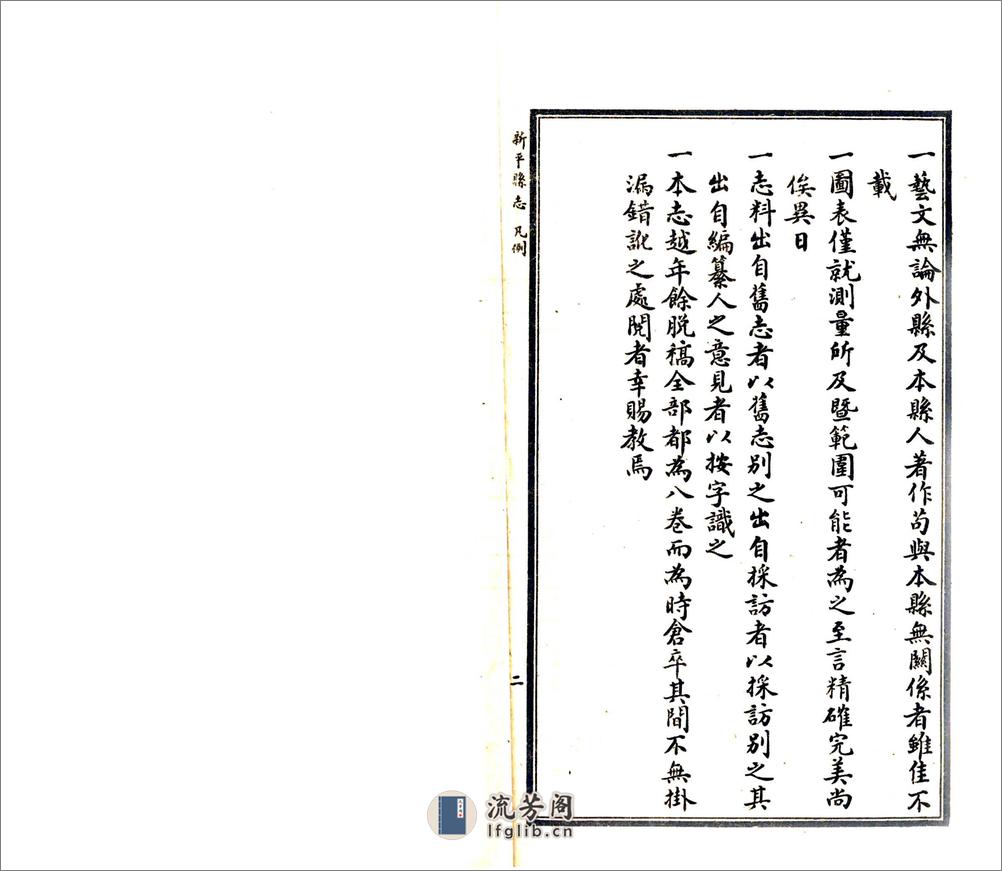 一藝文無論外縣及本縣人著作苟與本縣無關係者雖佳不
載
一圖表僅就測量所及暨範圍可能者為之至言精確完美尚
俟異日
一志料出自舊志者以舊志別之出自採訪者以採訪別之其
出自編纂人之意見者以按字識之
一本志越年餘脫稿全部都為八卷而為時倉卒其間不無掛
漏錯訛之處閱者幸賜教焉
新平縣志 凡例
二
流芳阁
lfglib.cn